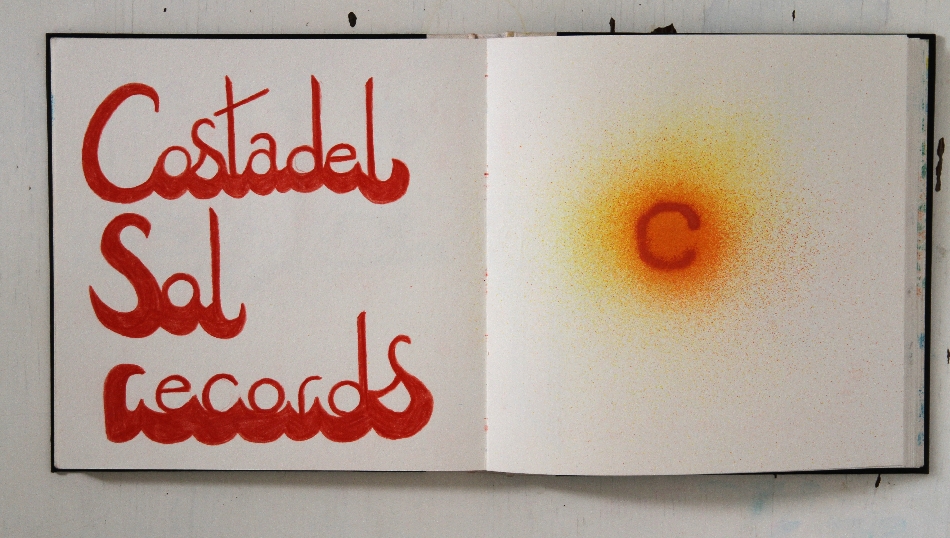 Costadel
Sol
records
C